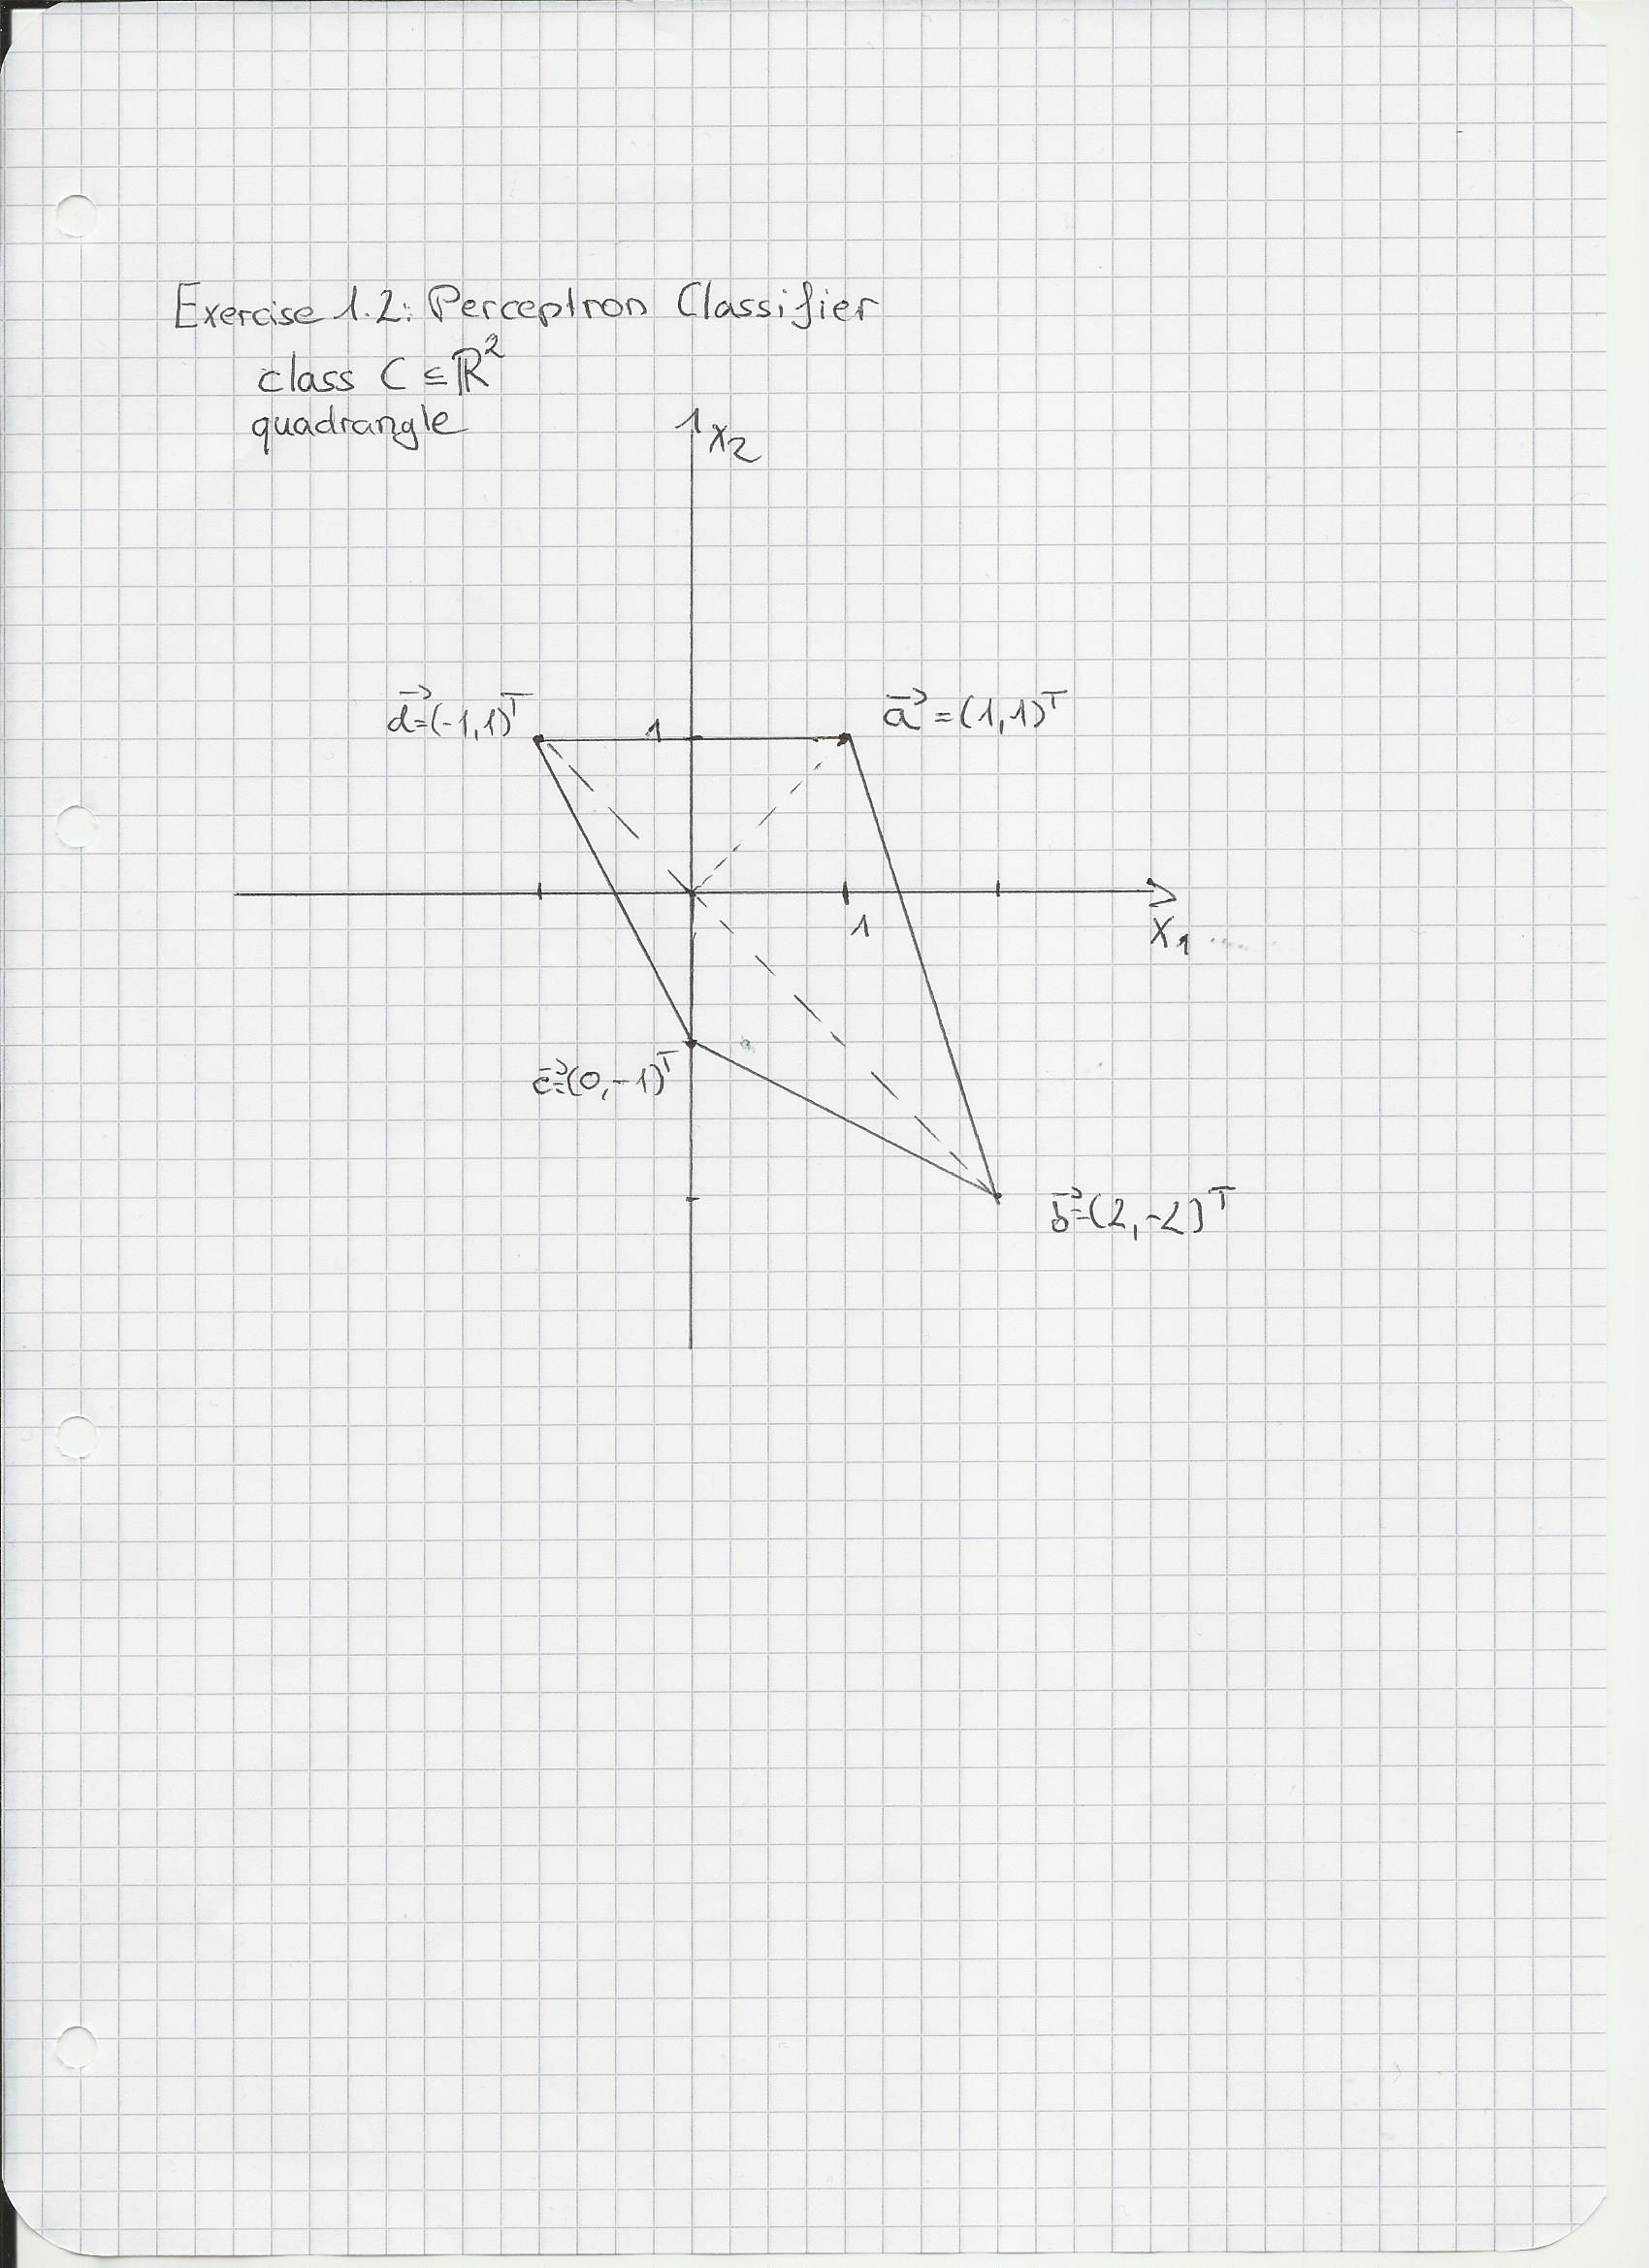 Exercise 1.2: Perceptron Classifier
class C ⊆ ℝ²
quadrangle
x₂
d⃗=(-1,1)ᵀ
1
a⃗=(1,1)ᵀ
1
x₁
c⃗=(0,-1)ᵀ
b⃗=(2,-2)ᵀ